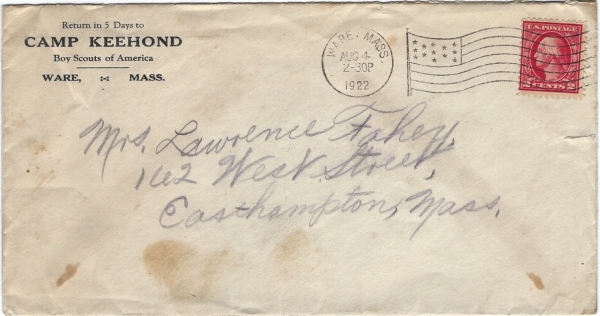 Return in 5 Days to
CAMP KEEHOND
Boy Scouts of America
WARE, MASS.
WARE. MASS.
AUG 4-
2-30P
1922
U.S. POSTAGE
2 CENTS 2
Mrs. Lawrence Fahey,
162 West Street,
Easthampton, Mass.